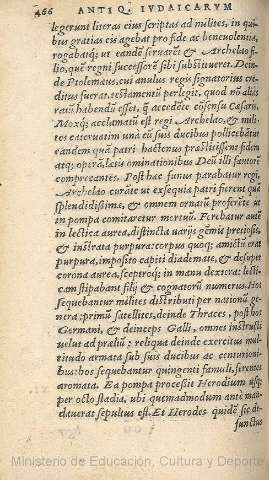 466 ANTIQ. IVDAICARVM
legerunt literas eius scriptas ad milites, in qui-
bus gratias eis agebat pro fide ac beneuolentia,
rogabatq; ut eandē seruarēt & Archelao fi-
lio, quē regni successorē sibi substitueret. Dein-
de Ptolemæus, cui anulus regis signatorius cre-
ditus fuerat, testamentū perlegit, quod nō aliàs
ratū habendū esset, quàm accedēte cōsensu Cæsaris.
Moxq; acclamatū est regi Archelao, & mili-
tes cateruatim una cū suis ducibus pollicebātur
eandem quā patri hactenus præstitissent fidem
atq; operā, lætis ominationibus Deū illi fautorē
comprecantes. Post hæc funus parabatur regi,
Archelao curāte ut exsequia patri fierent quàm
splendidissimæ, & omnem ornatū proferēte ut
in pompa comitaretur mortuū. Ferebatur autē
in lectica aurea, distincta uarijs gēmis pretiosis,
& instrata purpura: corpus quoq; amictū erat
purpura, imposito capiti diademate, & desuper
corona aurea, sceptroq; in manu dextera: lecti-
cam stipabant filij & cognatorū numerus. Hos
sequebantur milites distributi per nationū ge-
nera: primū satellites, deinde Thraces, post hos
Germani, & deinceps Galli, omnes instructi
uelut ad prælium: reliqua deinde exercitus mul-
titudo armata sub suis ducibus ac centurioni-
bus: hos sequebantur quingenti famuli, ferentes
aromata. Ea pompa processit Herodium usq;
per octo stadia, ubi quemadmodum ante man-
dauerat sepultus est. Et Herodes quidē sic di-
functus
Ministerio de Educación, Cultura y Deporte